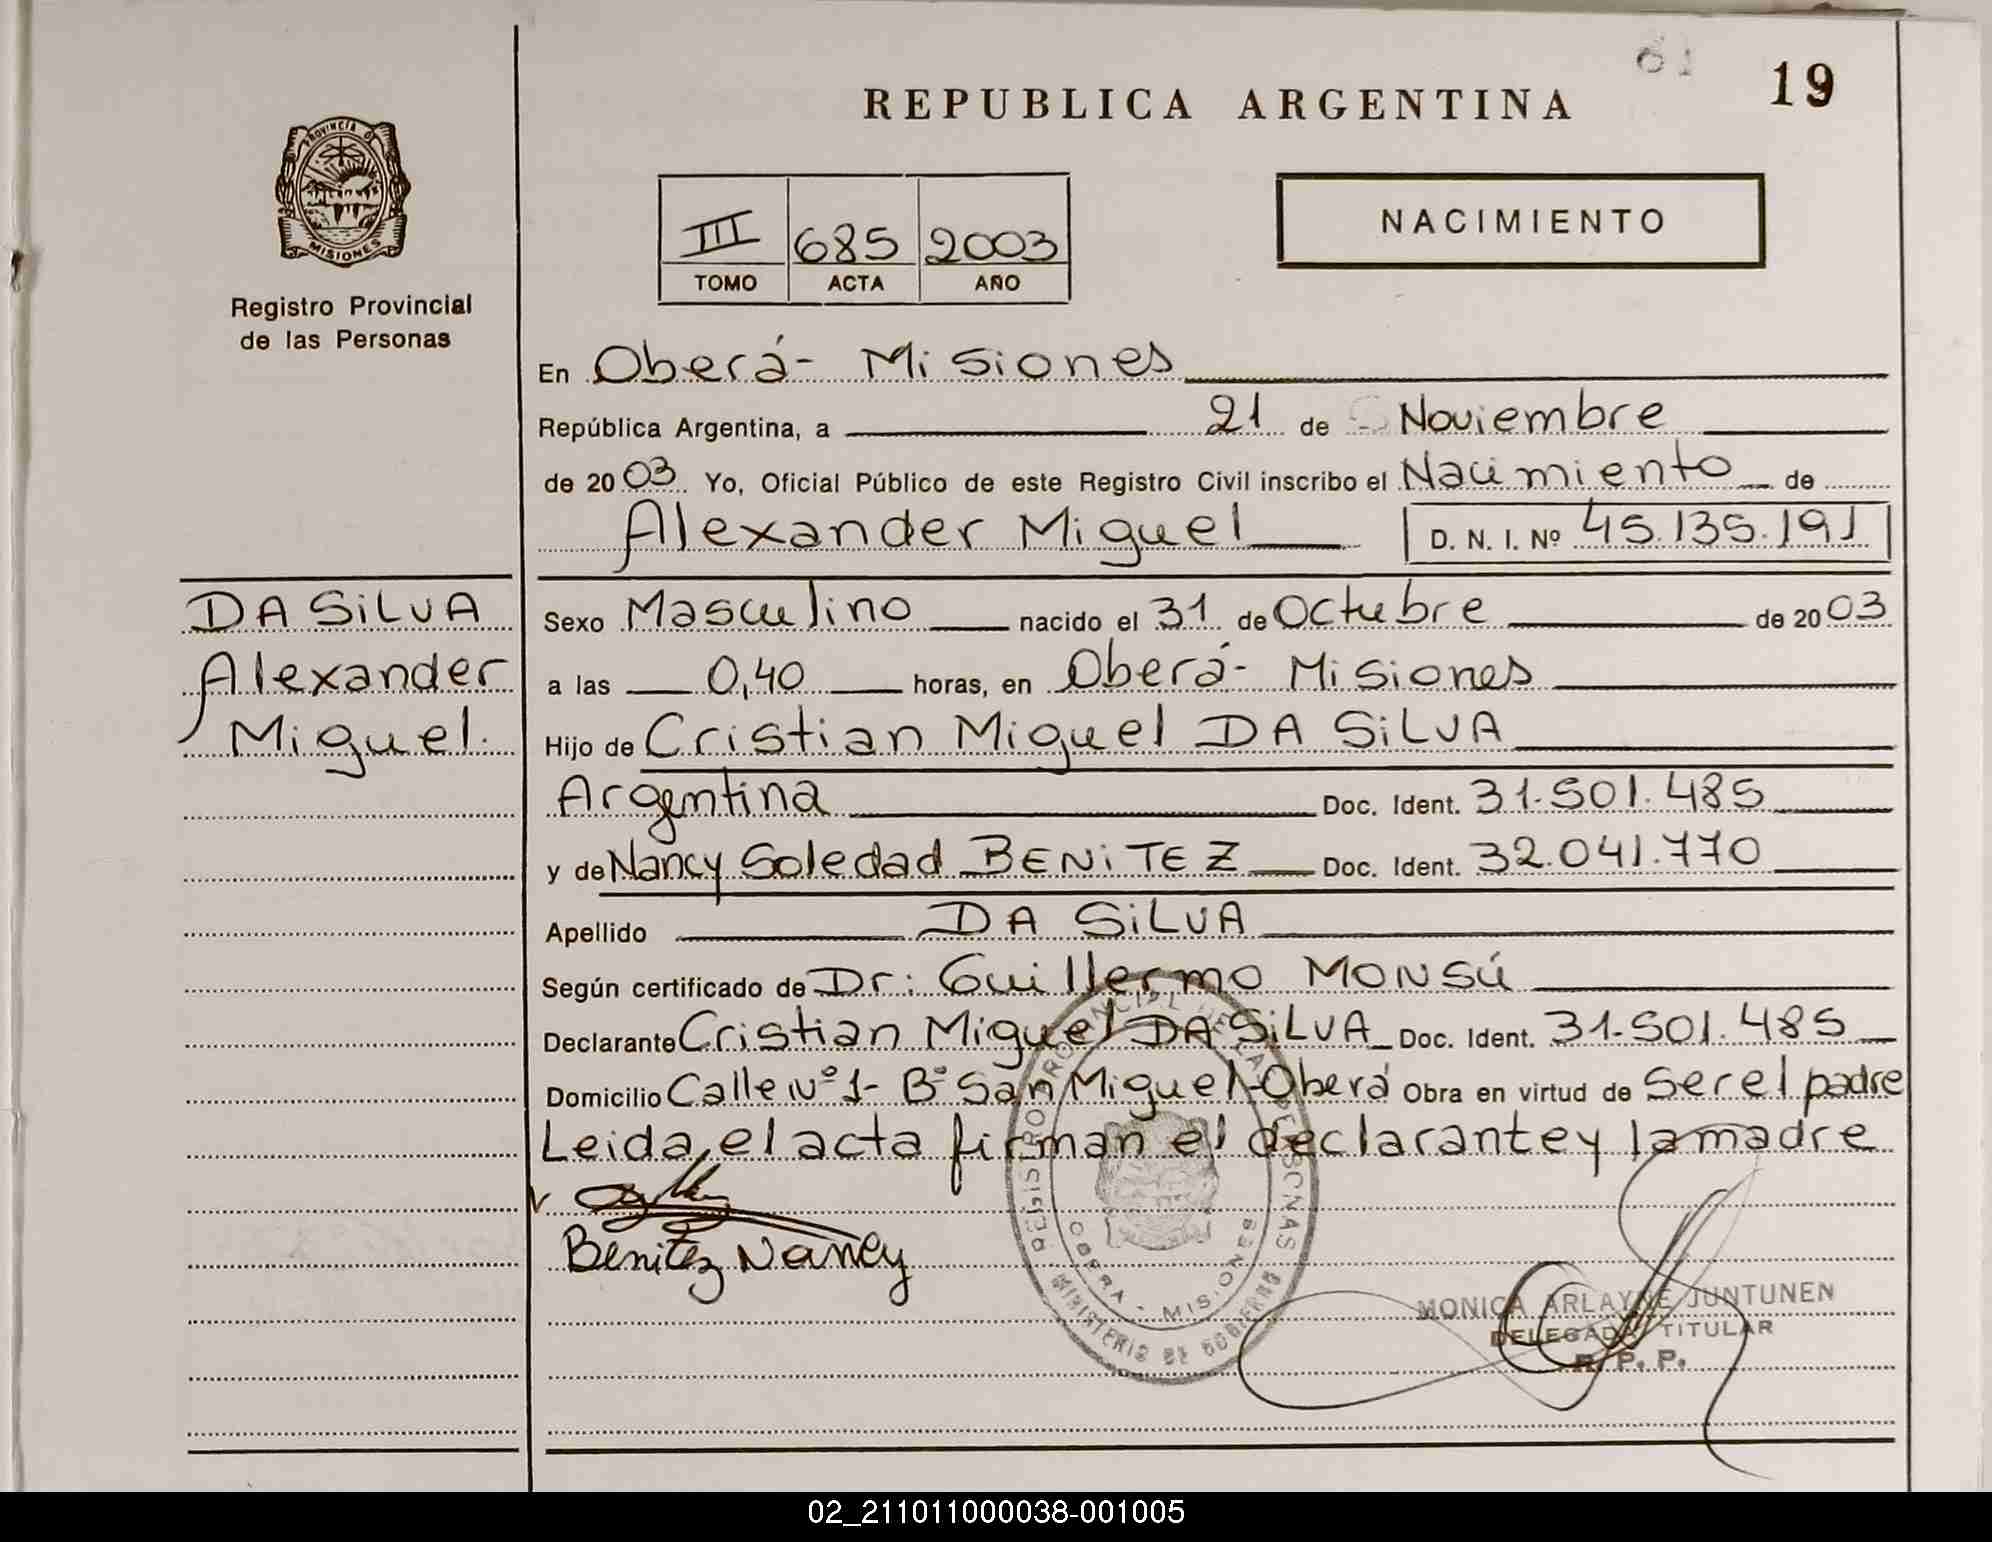 19
REPUBLICA ARGENTINA
PROVINCIA DE
MISIONES
Registro Provincial
de las Personas
III 685 2003
TOMO ACTA AÑO
NACIMIENTO
En Oberá - Misiones
República Argentina, a 21 de Noviembre
de 2003. Yo, Oficial Público de este Registro Civil inscribo el Nacimiento de
Alexander Miguel D. N. I. Nº 45.135.191
DA SiLVA
Alexander
Miguel.
Sexo Masculino nacido el 31 de Octubre de 2003
a las 0,40 horas, en Oberá - Misiones
Hijo de Cristian Miguel DA SiLVA
Argentina Doc. Ident. 31.501.485
y de Nancy Soledad BENiTEZ Doc. Ident. 32.041.770
Apellido DA SiLVA
Según certificado de Dr: Guillermo MONSÚ
Declarante Cristian Miguel DA SiLVA Doc. Ident. 31.501.485
Domicilio Calle Nº 1 - Bº San Miguel - Oberá Obra en virtud de Ser el padre
Leida, el acta firman el declarante y la madre
Benitez Nancy
REGISTRO PROVINCIAL DE LAS PERSONAS
OBERA - MISIONES
MINISTERIO DE GOBIERNO
MONICA ARLAYNE JUNTUNEN
DELEGADA TITULAR
R. P. P.
02_211011000038-001005